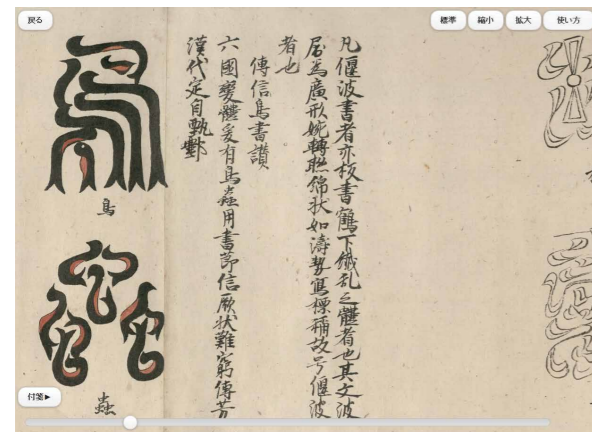 戻る
標準
縮小
拡大
使い方
凡偃波書者亦板書鶴下㦰乱之體者也其文波
屈為廣形婉轉聮綿状如濤勢寫標稱故号偃波
者也
傳信鳥書讃
六國變體爰有鳥蟲用書節信厥状難窮傳芳
漢代定自甄酆
鳥
蟲
付箋▶